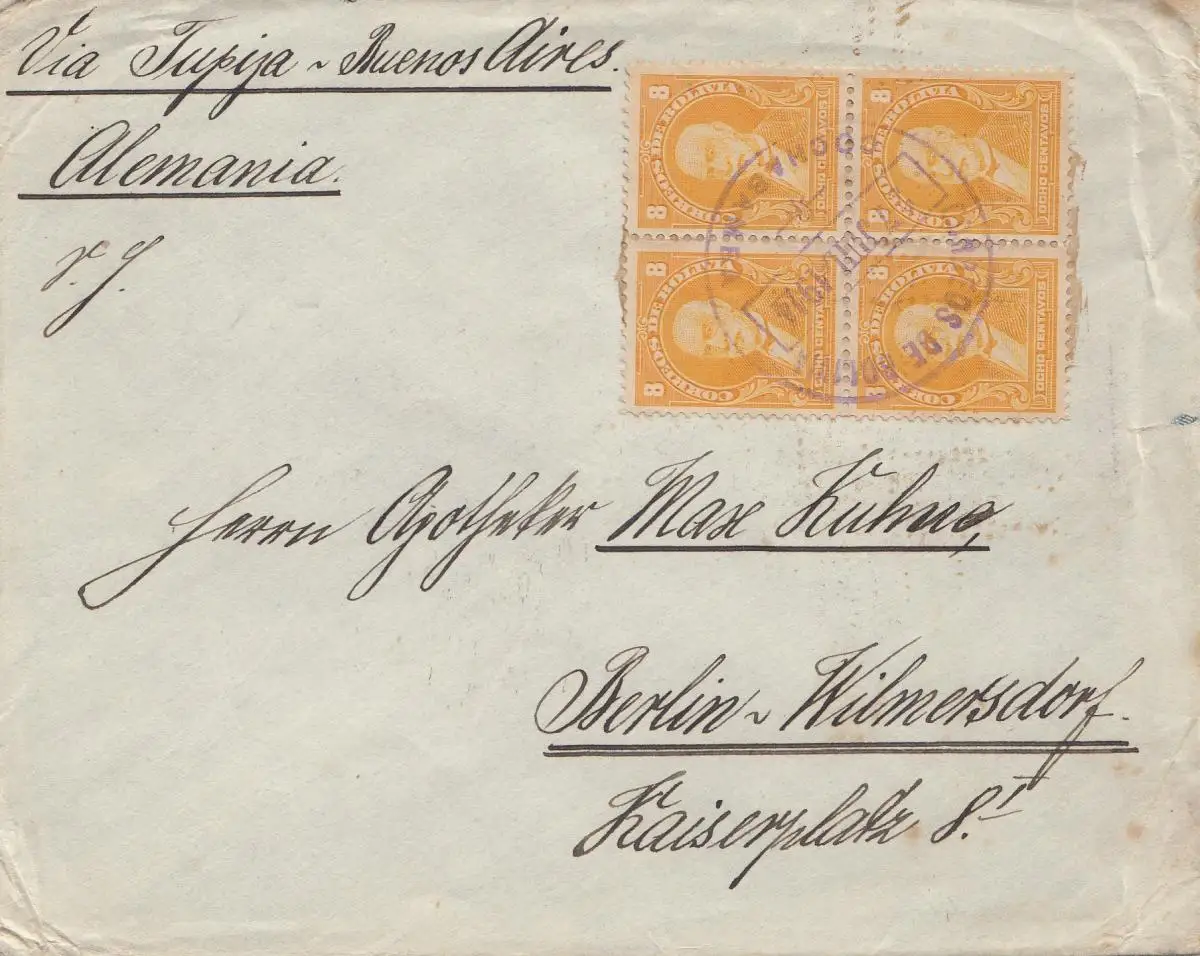 Via Tupija - Buenos Aires.
Alemania.
Herrn Apotheker Max Kuhne,
Berlin - Wilmersdorf.
Kaiserplatz 8.I
CORREOS DE BOLIVIA
8
OCHO CENTAVOS
8
CORREOS DE BOLIVIA
8
OCHO CENTAVOS
8
CORREOS DE BOLIVIA
8
OCHO CENTAVOS
CORREOS DE BOLIVIA
8
OCHO CENTAVOS
8